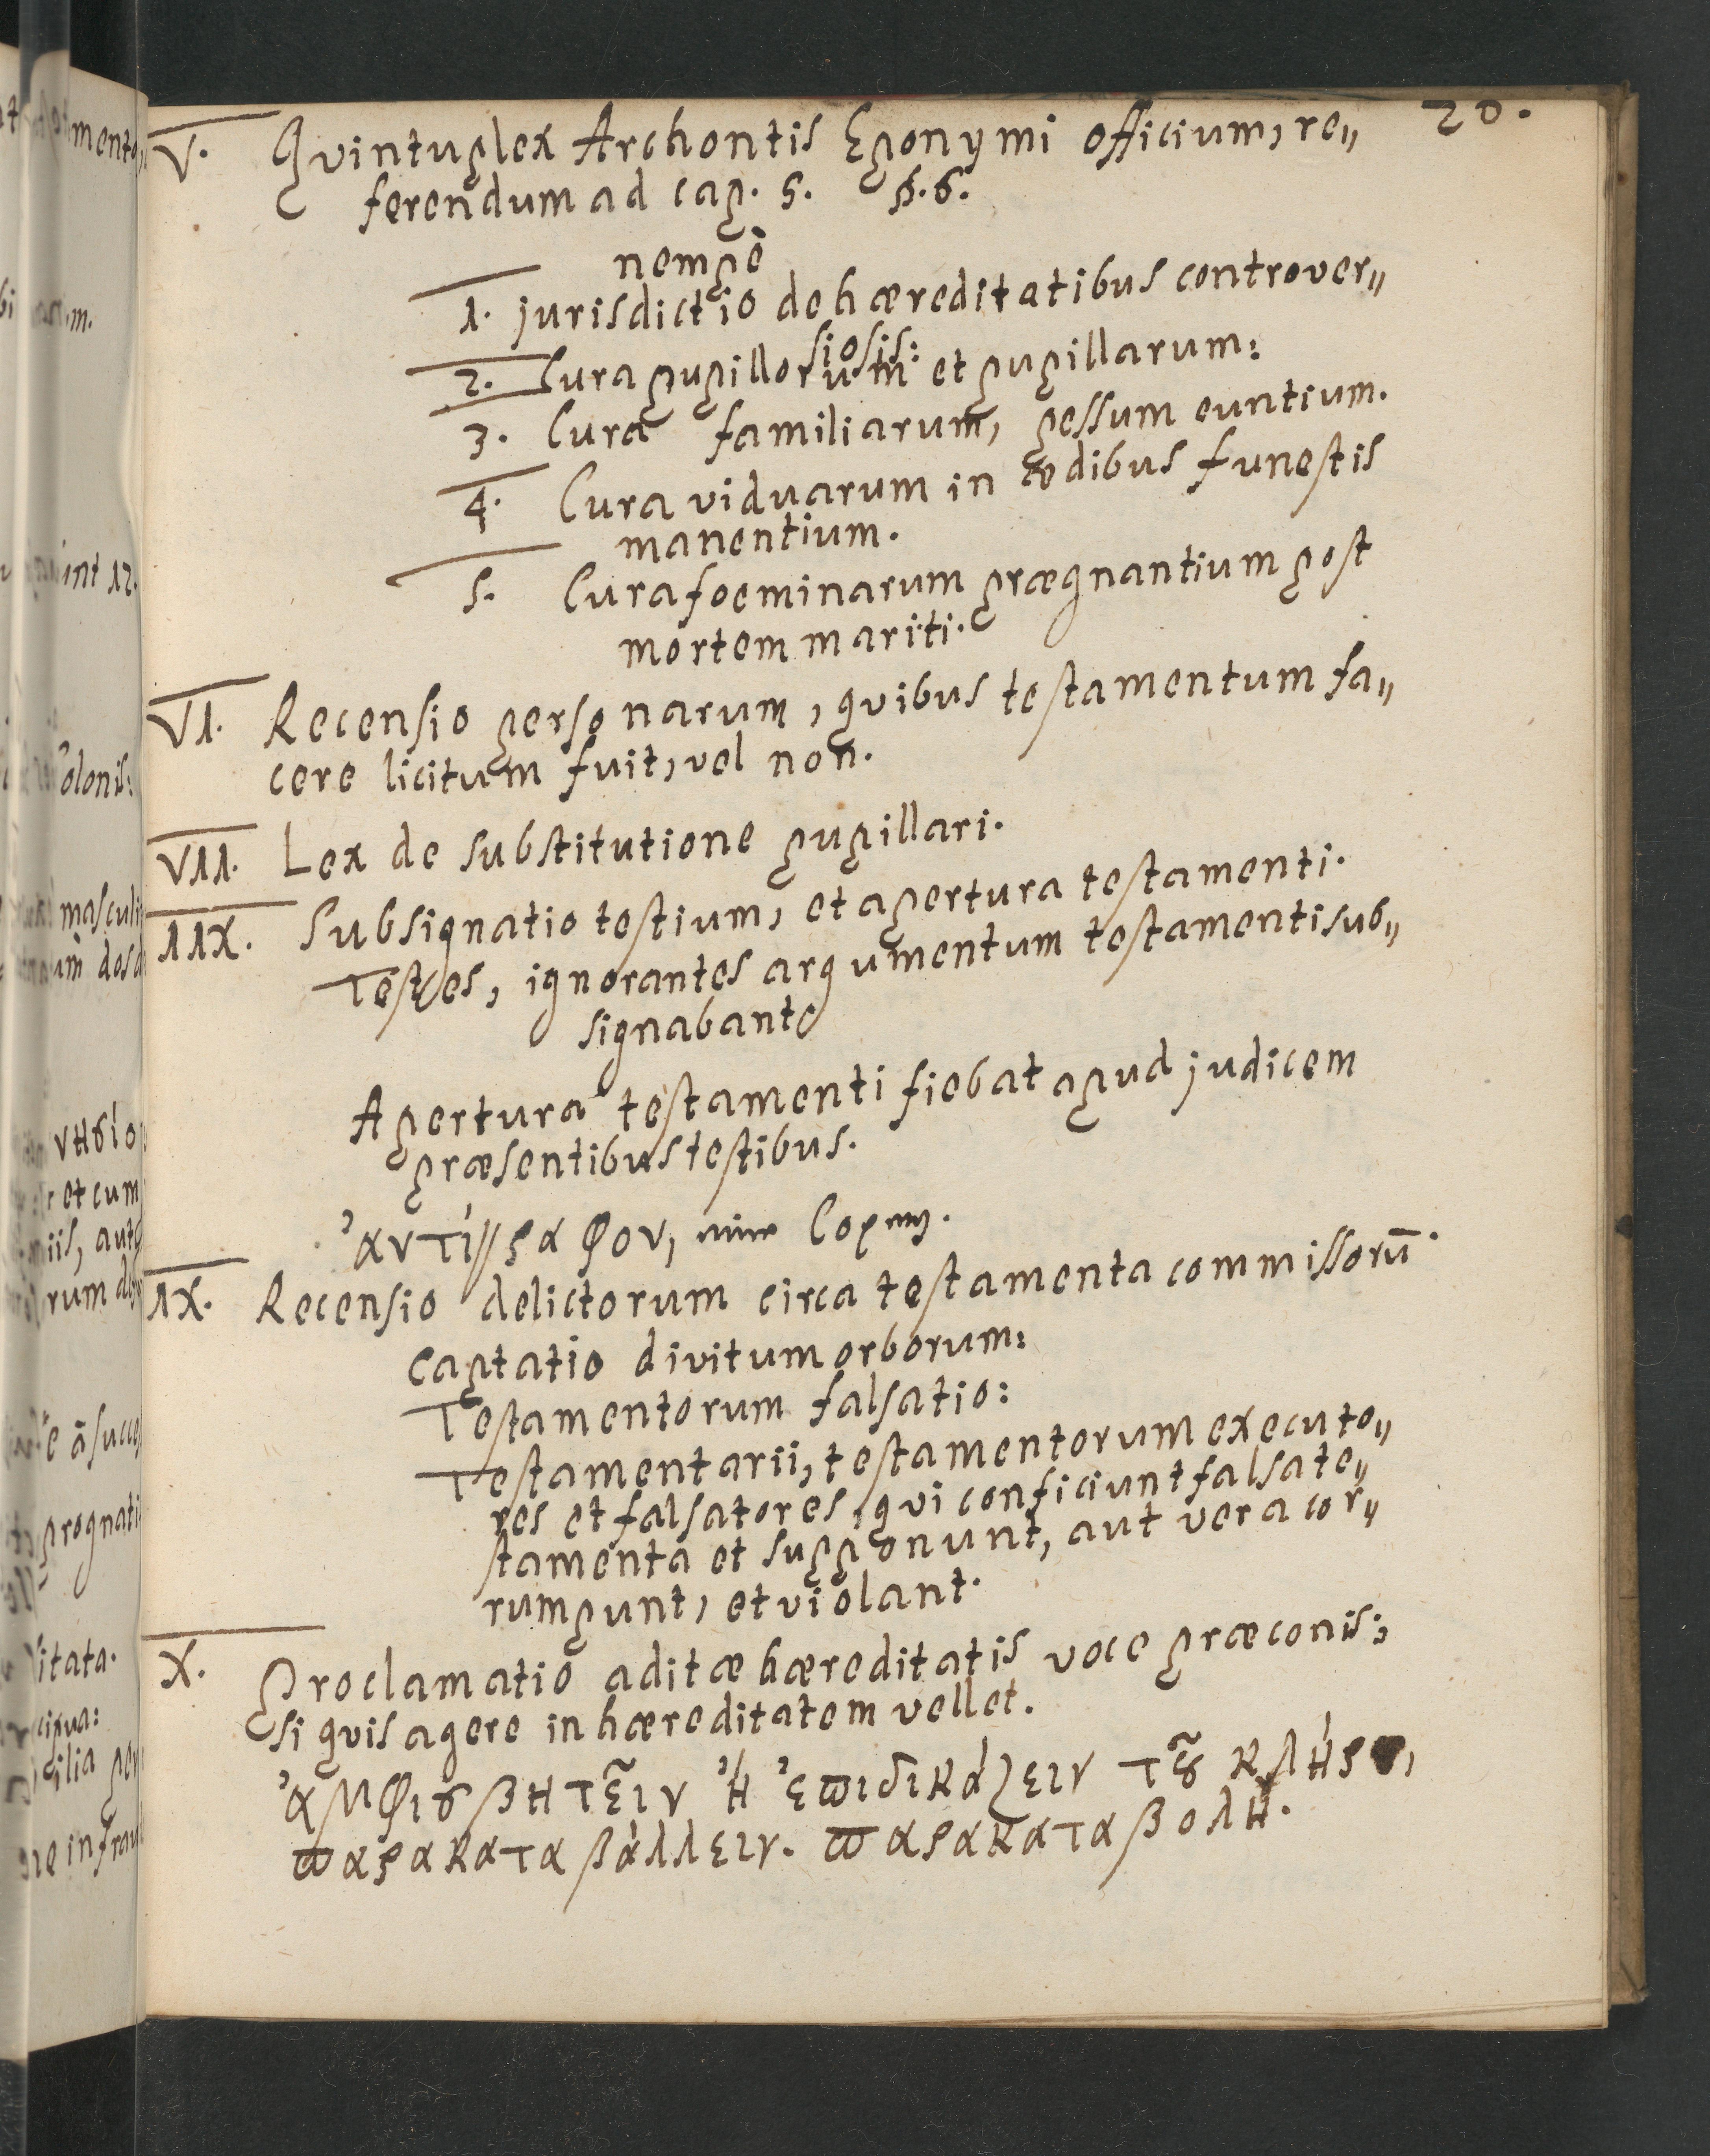 20.
V. Qvintuplex Archontis Eponymi officium, re„
ferendum ad cap. 5. §. 6.
nempè
1. jurisdictio de hæreditatibus controver„
siosis:
2. Cura pupillorum et pupillarum:
3. Cura familiarum, pessum euntium.
4. Cura viduarum in ædibus funestis
manentium.
5. Cura foeminarum prægnantium post
mortem mariti.
VI. Recensio personarum, qvibus testamentum fa„
cere licitum fuit, vel non.
VII. Lex de substitutione pupillari.
IIX. Subsignatio testium, et apertura testamenti.
Testes, ignorantes argumentum testamenti sub„
signabant
Apertura testamenti fiebat apud judicem
præsentibus testibus.
ἀντίγραφον, eine Copey.
IX. Recensio delictorum circa testamenta commissorū.
Captatio divitum orborum:
Testamentorum falsatio:
Testamentarii, testamentorum executo„
res et falsatores, qvi conficiunt falsa te„
stamenta et supponunt, aut vera cor„
rumpunt, et violant.
X. Proclamatio aditæ hæreditatis voce præconis;
si qvis agere in hæreditatem vellet.
ἀμφισβητεῖν ἢ ἐπιδικάζειν τοῦ κλήρου,
παρακαταβάλλειν. παρακαταβολή.